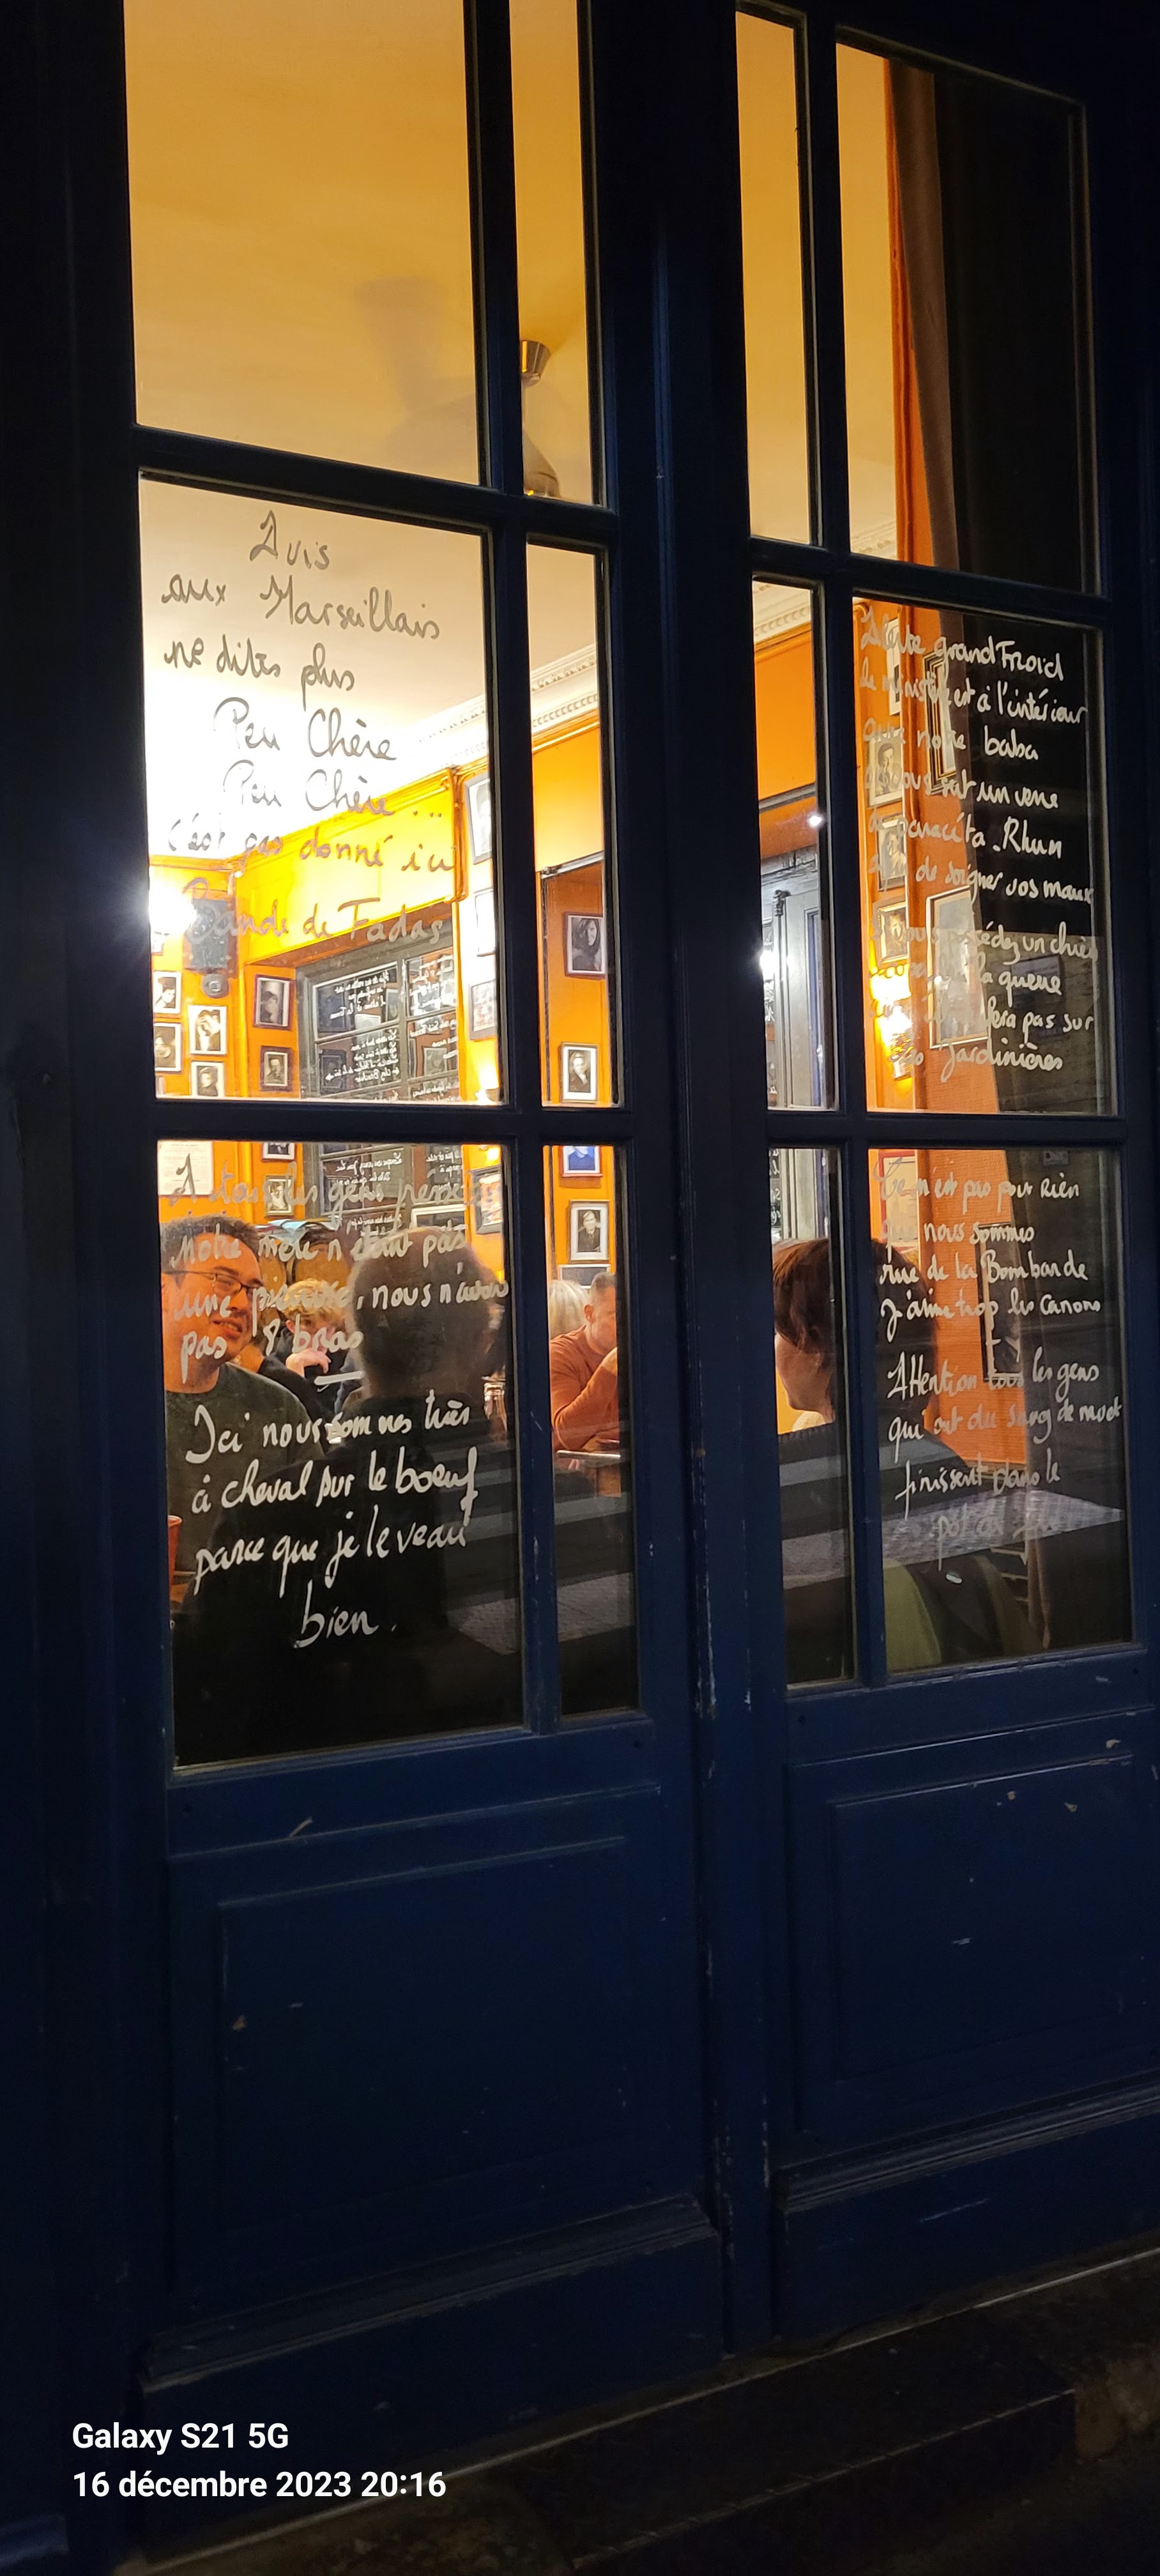 Avis
aux Marseillais
ne dites plus
Peu Chère
Peu Chère ...
c'est pas donné ici
Bande de Fadas
A tous les gens pressés
Notre mère n'étant pas
une pieuvre, nous n'avons
pas 8 bras
Ici nous sommes très
à cheval sur le boeuf
parce que je le veau
bien.
Alerte grand Froid
le ministère est à l'intérieur
notre baba
vous sert un verre
de paracéta.Rhum
de soigner vos maux
un chien
la queue
fera pas sur
Jardinières
Ce n'est pas pour Rien
que nous sommes
rue de la Bombarde
J'aime trop les canons
Attention tous les gens
qui ont du sang de navet
finissent dans le
pot au feu
Galaxy S21 5G
16 décembre 2023 20:16